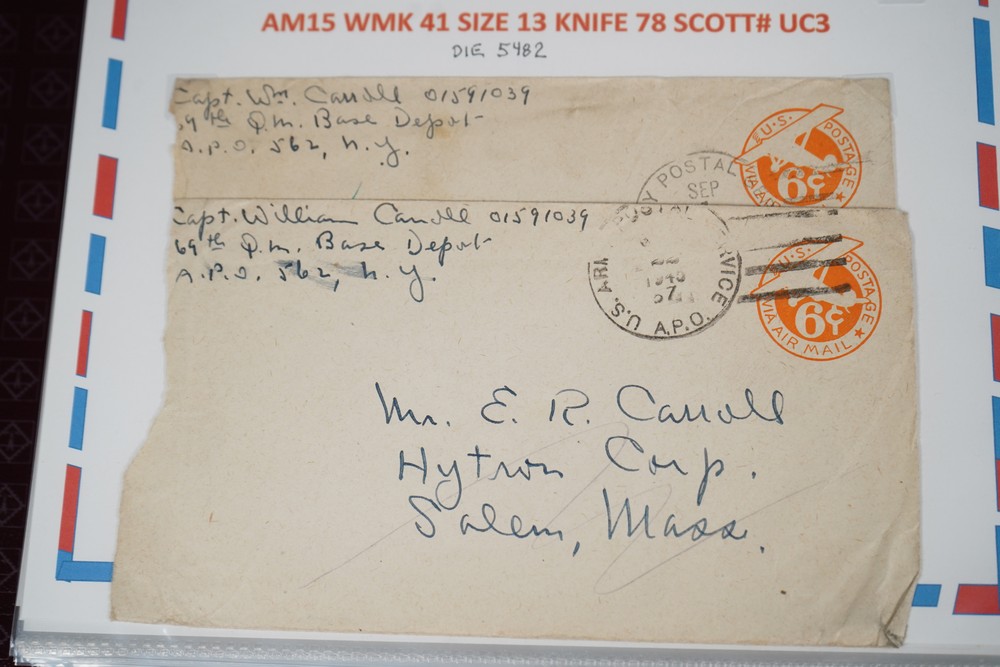 AM15 WMK 41 SIZE 13 KNIFE 78 SCOTT# UC3
DIE 5482
Capt. Wm. Carroll 01591039
69th Q.M. Base Depot
A.P.O. 562, N.Y.
POSTAL
SEP
U.S. POSTAGE
VIA
6¢
Capt. William Carroll 01591039
69th Q.M. Base Depot
A.P.O. 562, N.Y.
U.S. A.P.O.
7
U.S. POSTAGE
6¢
VIA AIR MAIL
Mr. E. R. Carroll
Hytron Corp.
Salem, Mass.